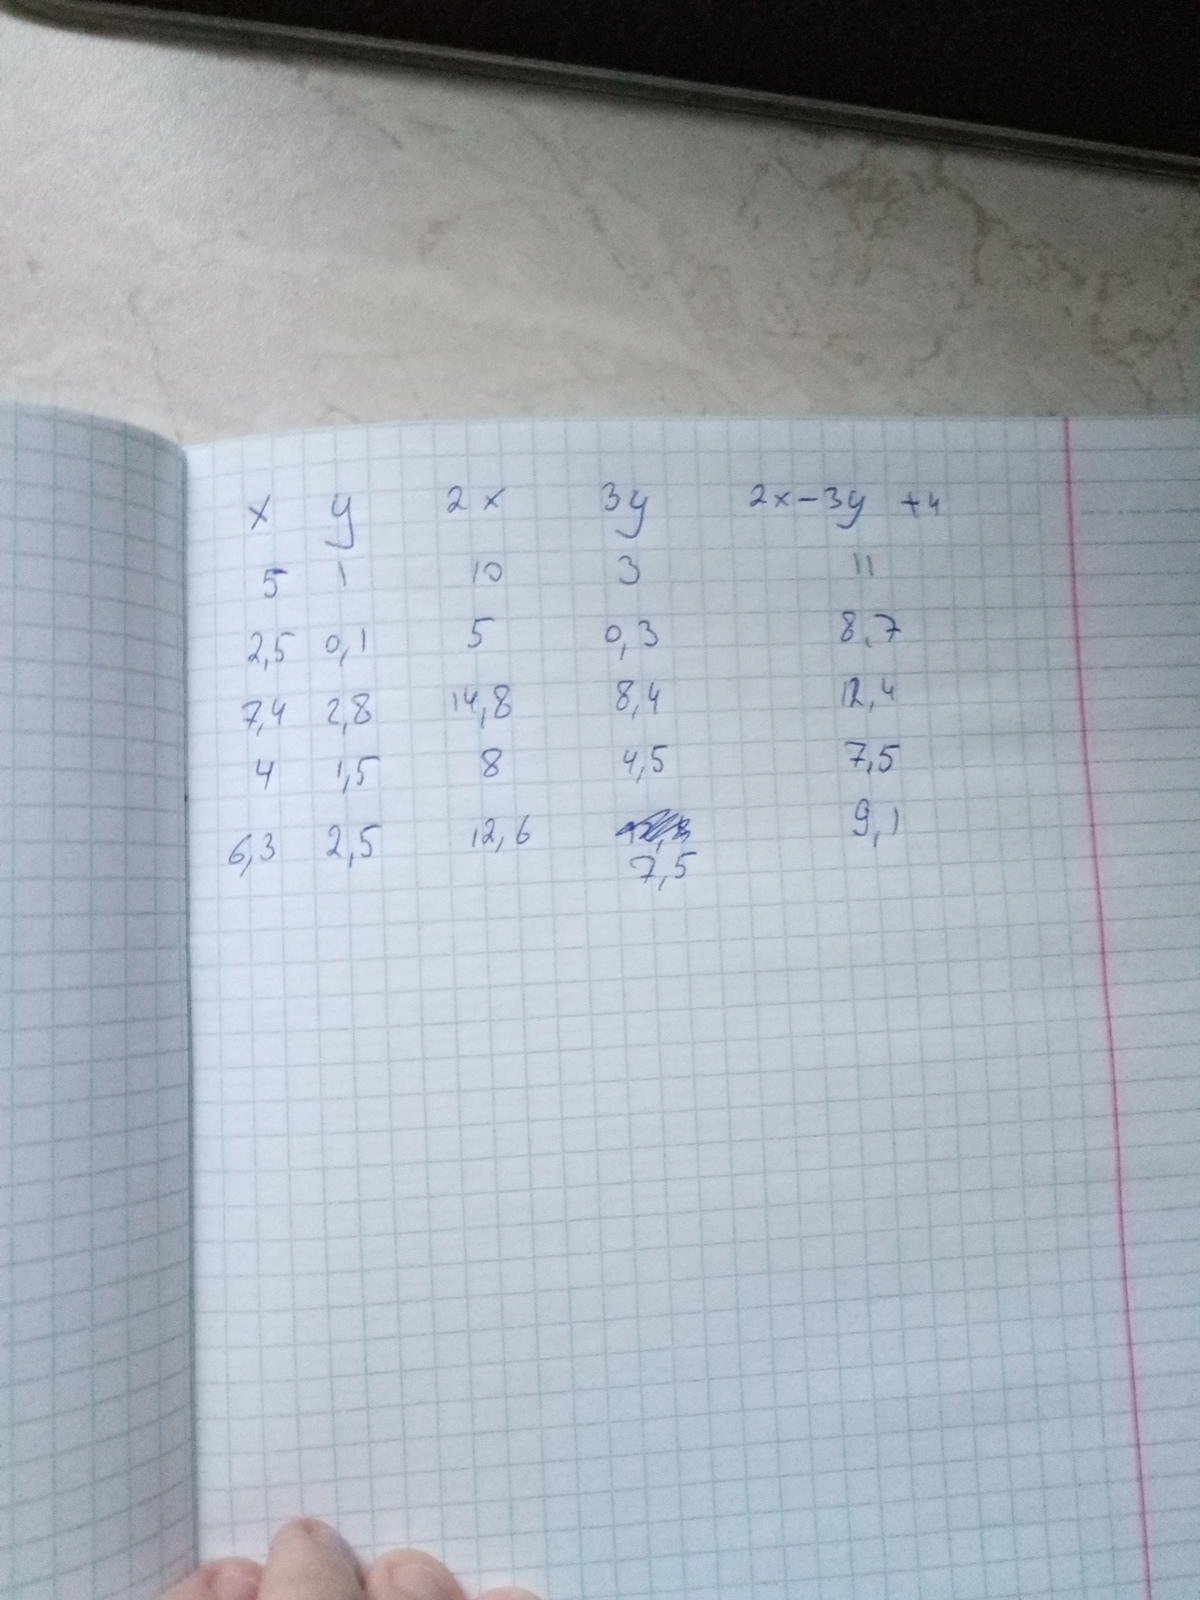 x y 2x 3y 2x-3y +4
5 1 10 3 11
2,5 0,1 5 0,3 8,7
7,4 2,8 14,8 8,4 12,4
4 1,5 8 4,5 7,5
6,3 2,5 12,6 9,1
7,5